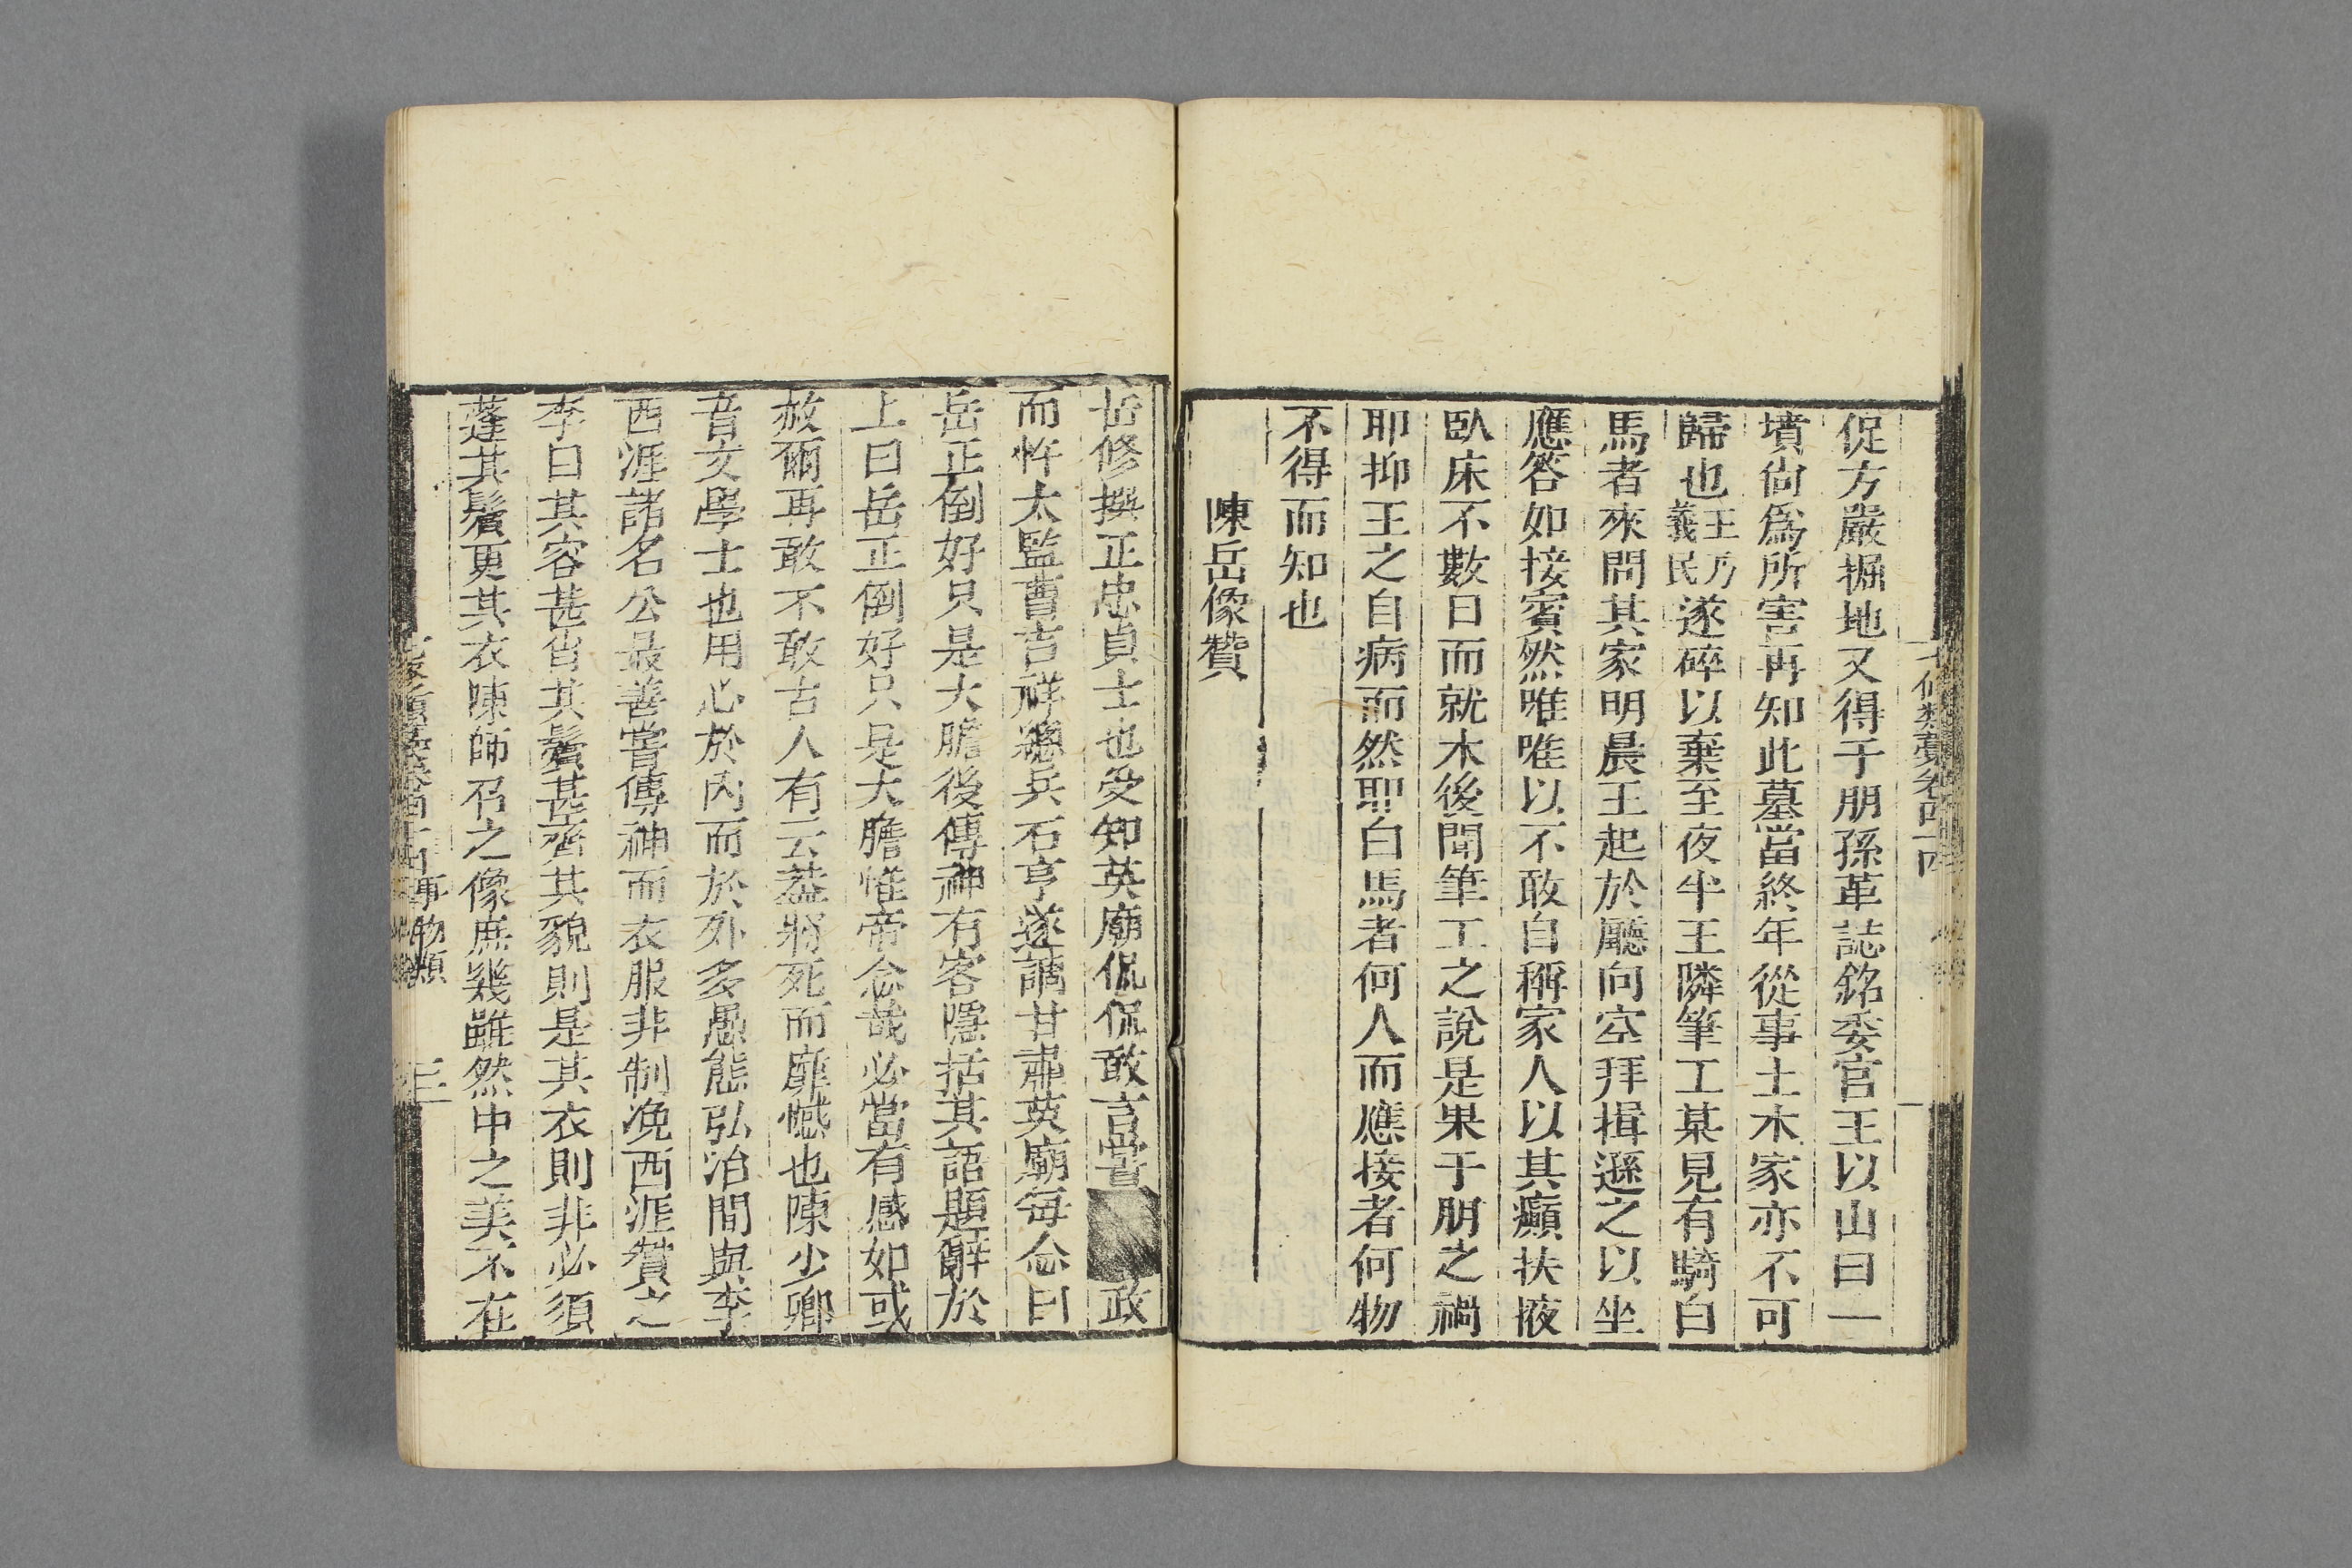 促方嚴掘地又得于朋孫革誌銘委官王以山曰一
墳尙爲所害再知此墓當終年從事土木家亦不可
歸也王乃義民遂碎以棄至夜半王隣筆工某見有騎白
馬者來問其家明晨王起於廳向空拜揖遜之以坐
應答如接賓然唯唯以不敢自稱家人以其癲扶掖
臥床不數日而就木後聞筆工之說是果于朋之禍
耶抑王之自病而然耶白馬者何人而應接者何物
不得而知也
陳岳像贊
岳修撰正忠貞士也受知英廟侃侃敢言嘗政
而忤太監曹吉祥總兵石亨遂謫甘肅英廟每念曰
岳正倒好只是大膽後傳神有客隱括其語題辭於
上曰岳正倒好只是大膽惟帝念哉必當有感如或
赦爾再敢不敢古人有云葢將死而靡憾也陳少卿
音文學士也用心於內而於外多愚態弘治間與李
西涯諸名公最善嘗傳神而衣服非制凂西涯贊之
李曰其容甚省其鬚甚齊其貌則是其衣則非必須
蓬其鬚更其衣陳師召之像庶幾雖然中之美不在
七修類藁卷四十四
事物類
三